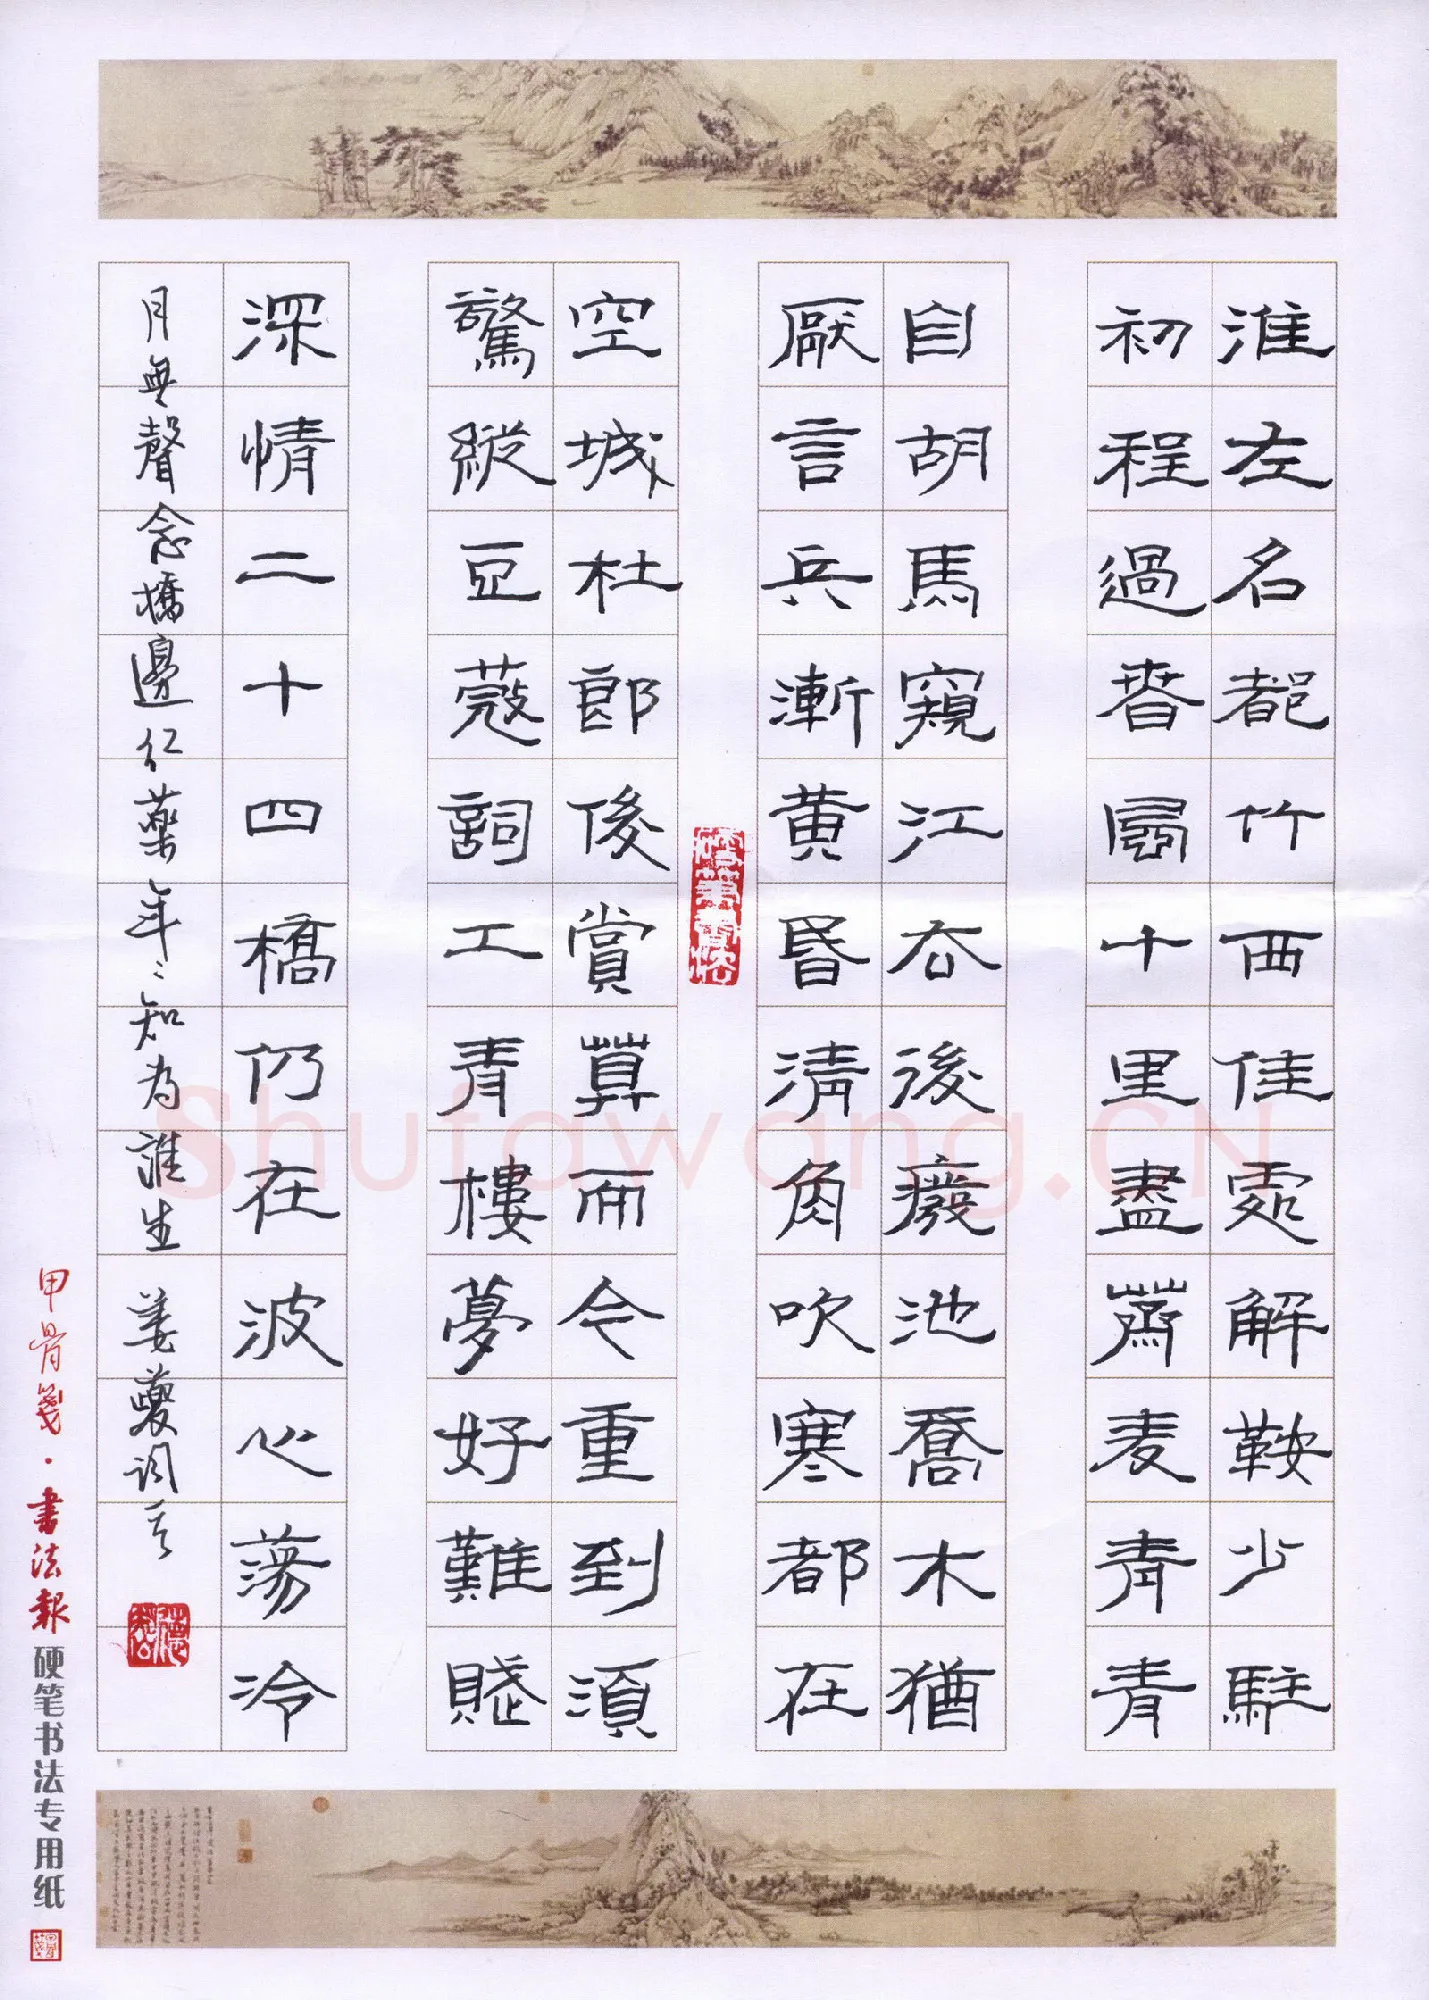 淮左名都竹西佳處解鞍少駐
初程過春風十里盡薺麦青青
自胡馬窺江去後廢池喬木猶
厭言兵漸黄昏清角吹寒都在
硬筆書法
空城杜郎後賞算而今重到須
驚縱豆蔻詞工青樓夢好難賦
深情二十四橋仍在波心蕩冷
月無聲念橋邊红藥年〻知為誰生 姜夔词
甲骨笺·書法報硬笔书法专用纸
Shufawang.CN